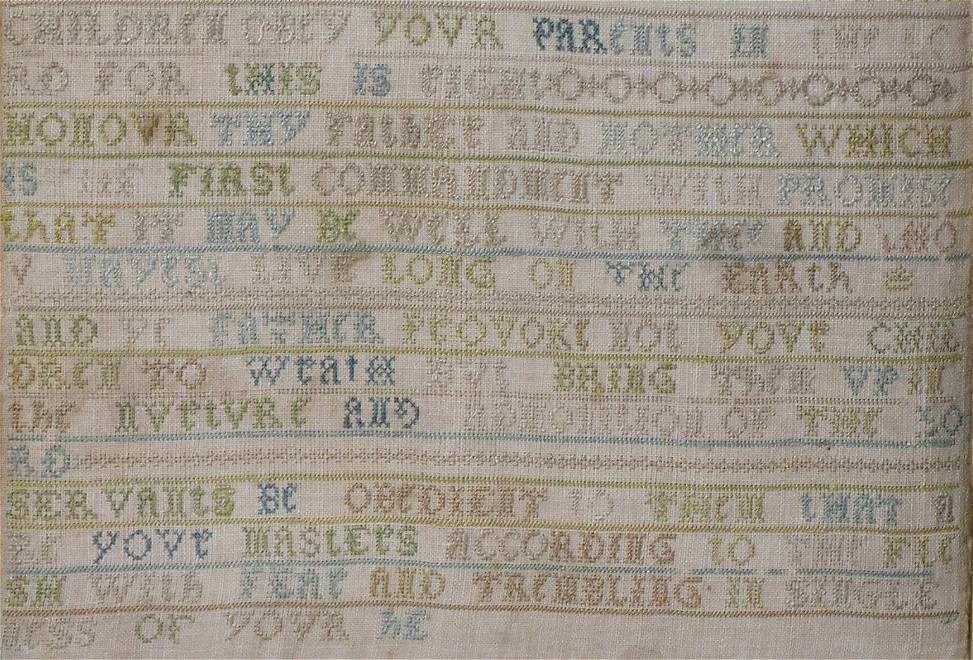 CHILDREN OBEY YOVR PARENTS IN THE LO
RD FOR THIS IS RIGHT
HONOVR THY FATHER AND MOTHER WHICH
IS THE FIRST COMMANDMENT WITH PROMISE
THAT IT MAY BE WELL WITH THEE AND THO
V MAYEST LIVE LONG ON THE EARTH
AND YE FATHER PROVOKE NOT YOVR CHIL
DREN TO WRATH BVT BRING THEM VP IN
THE NVRTVRE AND ADMONITION OF THE LO
RD
SERVANTS BE OBEDIENT TO THEM THAT A
RE YOVR MASTERS ACCORDING TO THE FLE
SH WITH FEAR AND TREMBLING IN SINGLE
NESS OF YOVR HE